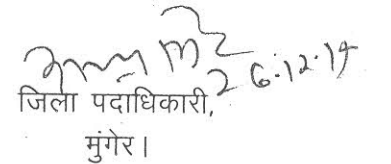 26.12.14
जिला पदाधिकारी,
मुंगेर।